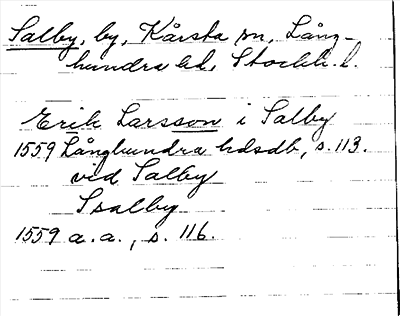 Salby, by, Kårsta sn, Lång-
hundra hd, Stockh. l.
Erik Larsson i Salby
1559 Långhundra hdsdb, s. 113.
vid Salby
Ssalby
1559 a.a., s. 116.